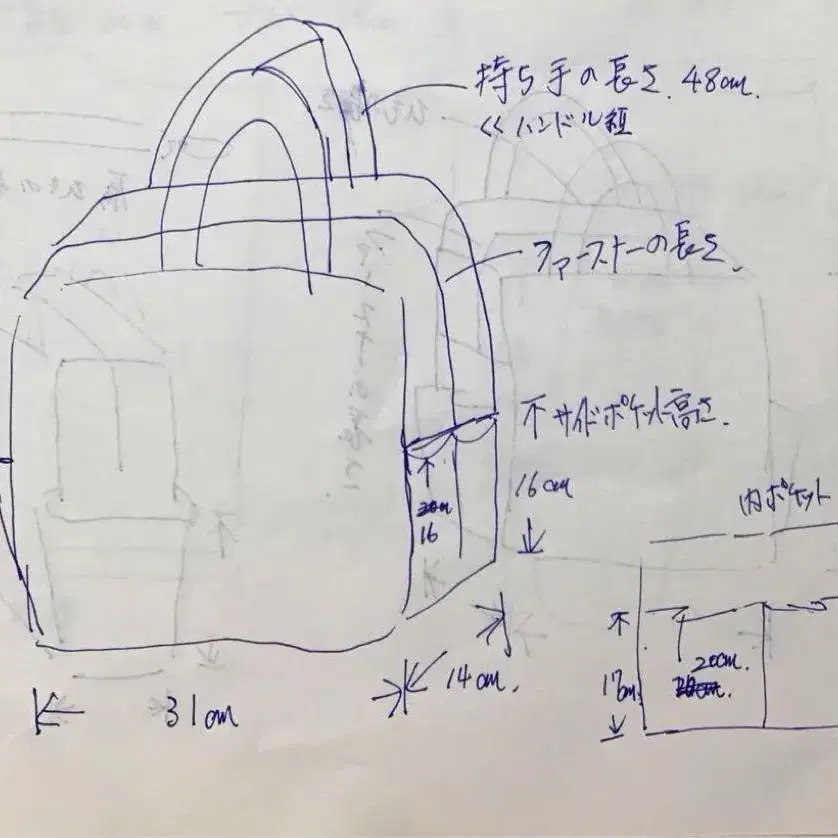 持ち手の長さ. 48cm.
<< ハンドル短
ファースナーの長さ.
サイドポケット高さ.
16cm
16
内ポケット
20cm.
17cm
14cm.
31cm